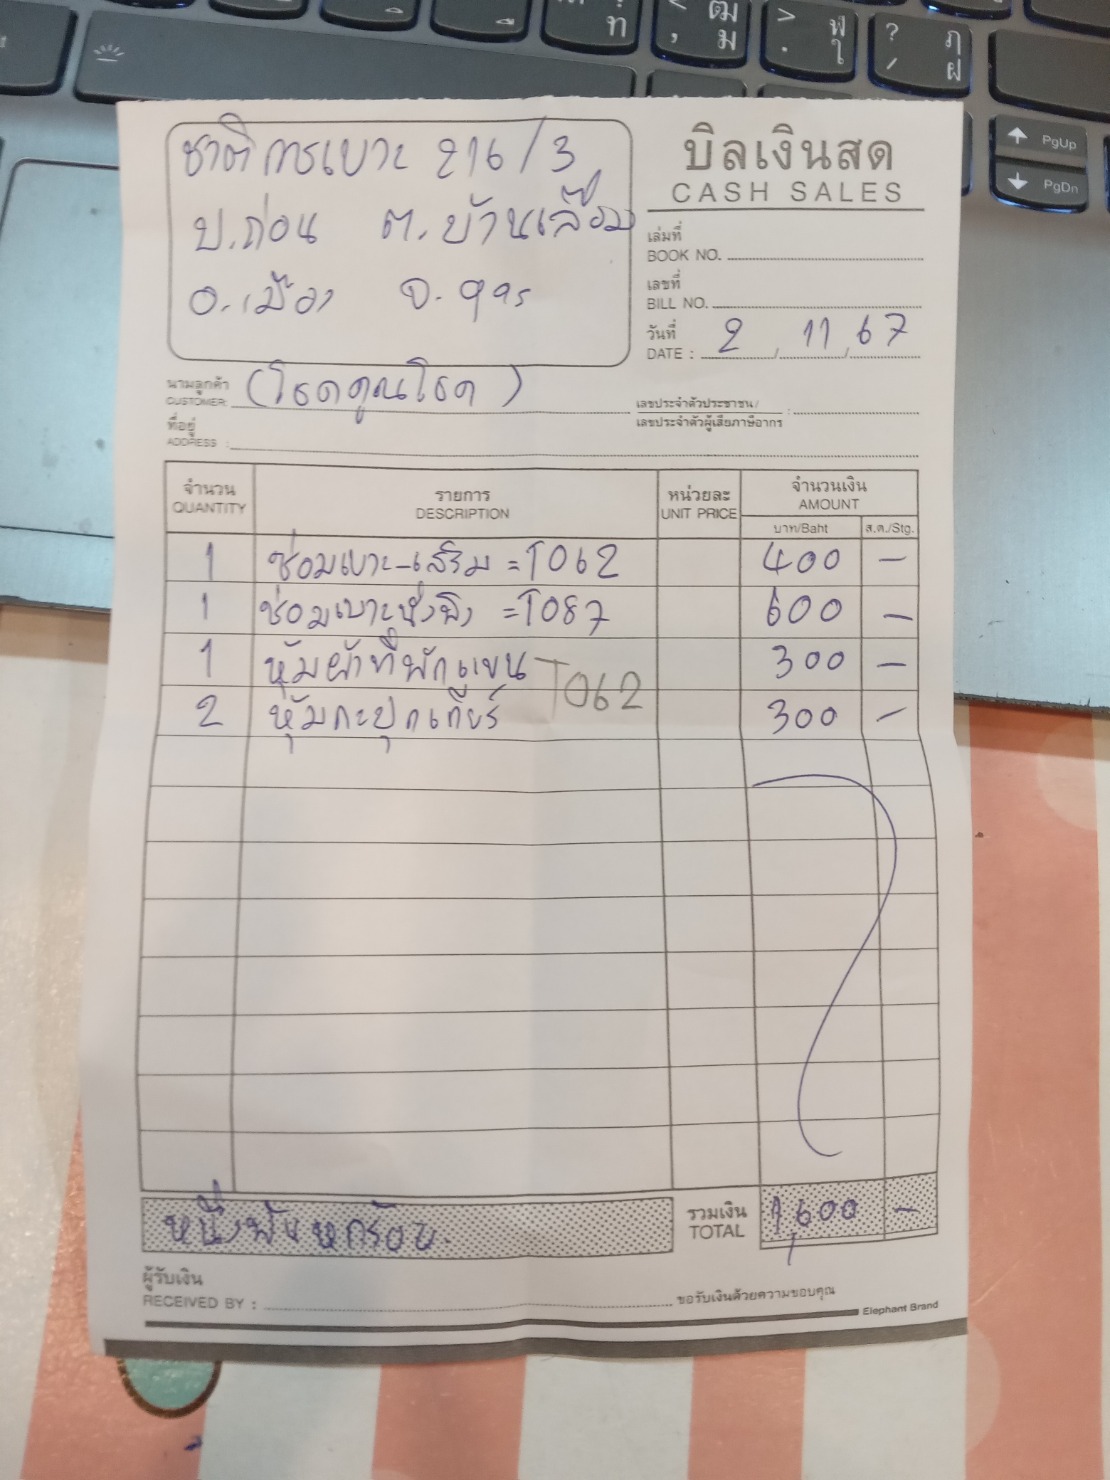 ชาติการเบาะ 216/3
บ.ก่อน ต.บ้านเลื่อม
อ.เมือง จ.อุดร
บิลเงินสด
CASH SALES
เล่มที่
BOOK NO.
เลขที่
BILL NO.
วันที่
DATE : 2 / 11 / 67
นามลูกค้า
CUSTOMER: (โชคคูณโชค)
เลขประจำตัวประชาชน/ :
เลขประจำตัวผู้เสียภาษีอากร
ที่อยู่
ADDRESS :
จำนวน รายการ หน่วยละ จำนวนเงิน
QUANTITY DESCRIPTION UNIT PRICE AMOUNT
บาท/Baht ส.ต./Stg.
1 ซ่อมเบาะ-เสริม =T062 400 -
1 ซ่อมเบาะนั่งพิง =T087 600 -
1 หุ้มผ้าที่พักแขน 300 -
T062
2 หุ้มกะปุกเกียร์ 300 -
หนึ่งพันหกร้อย. รวมเงิน 1,600 -
TOTAL
ผู้รับเงิน
RECEIVED BY : ขอรับเงินด้วยความขอบคุณ
Elephant Brand
PgUp
PgDn
? ฦ
/ ฝ
> ฬ
. ใ
< ฒ
, ม
ท